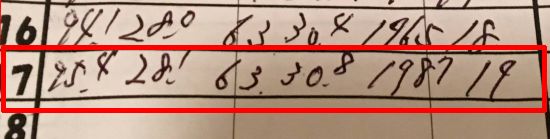 16 94.1 28.0 63 30.4 1965 18
7 95.4 28.1 63. 30.8 1987 19
8